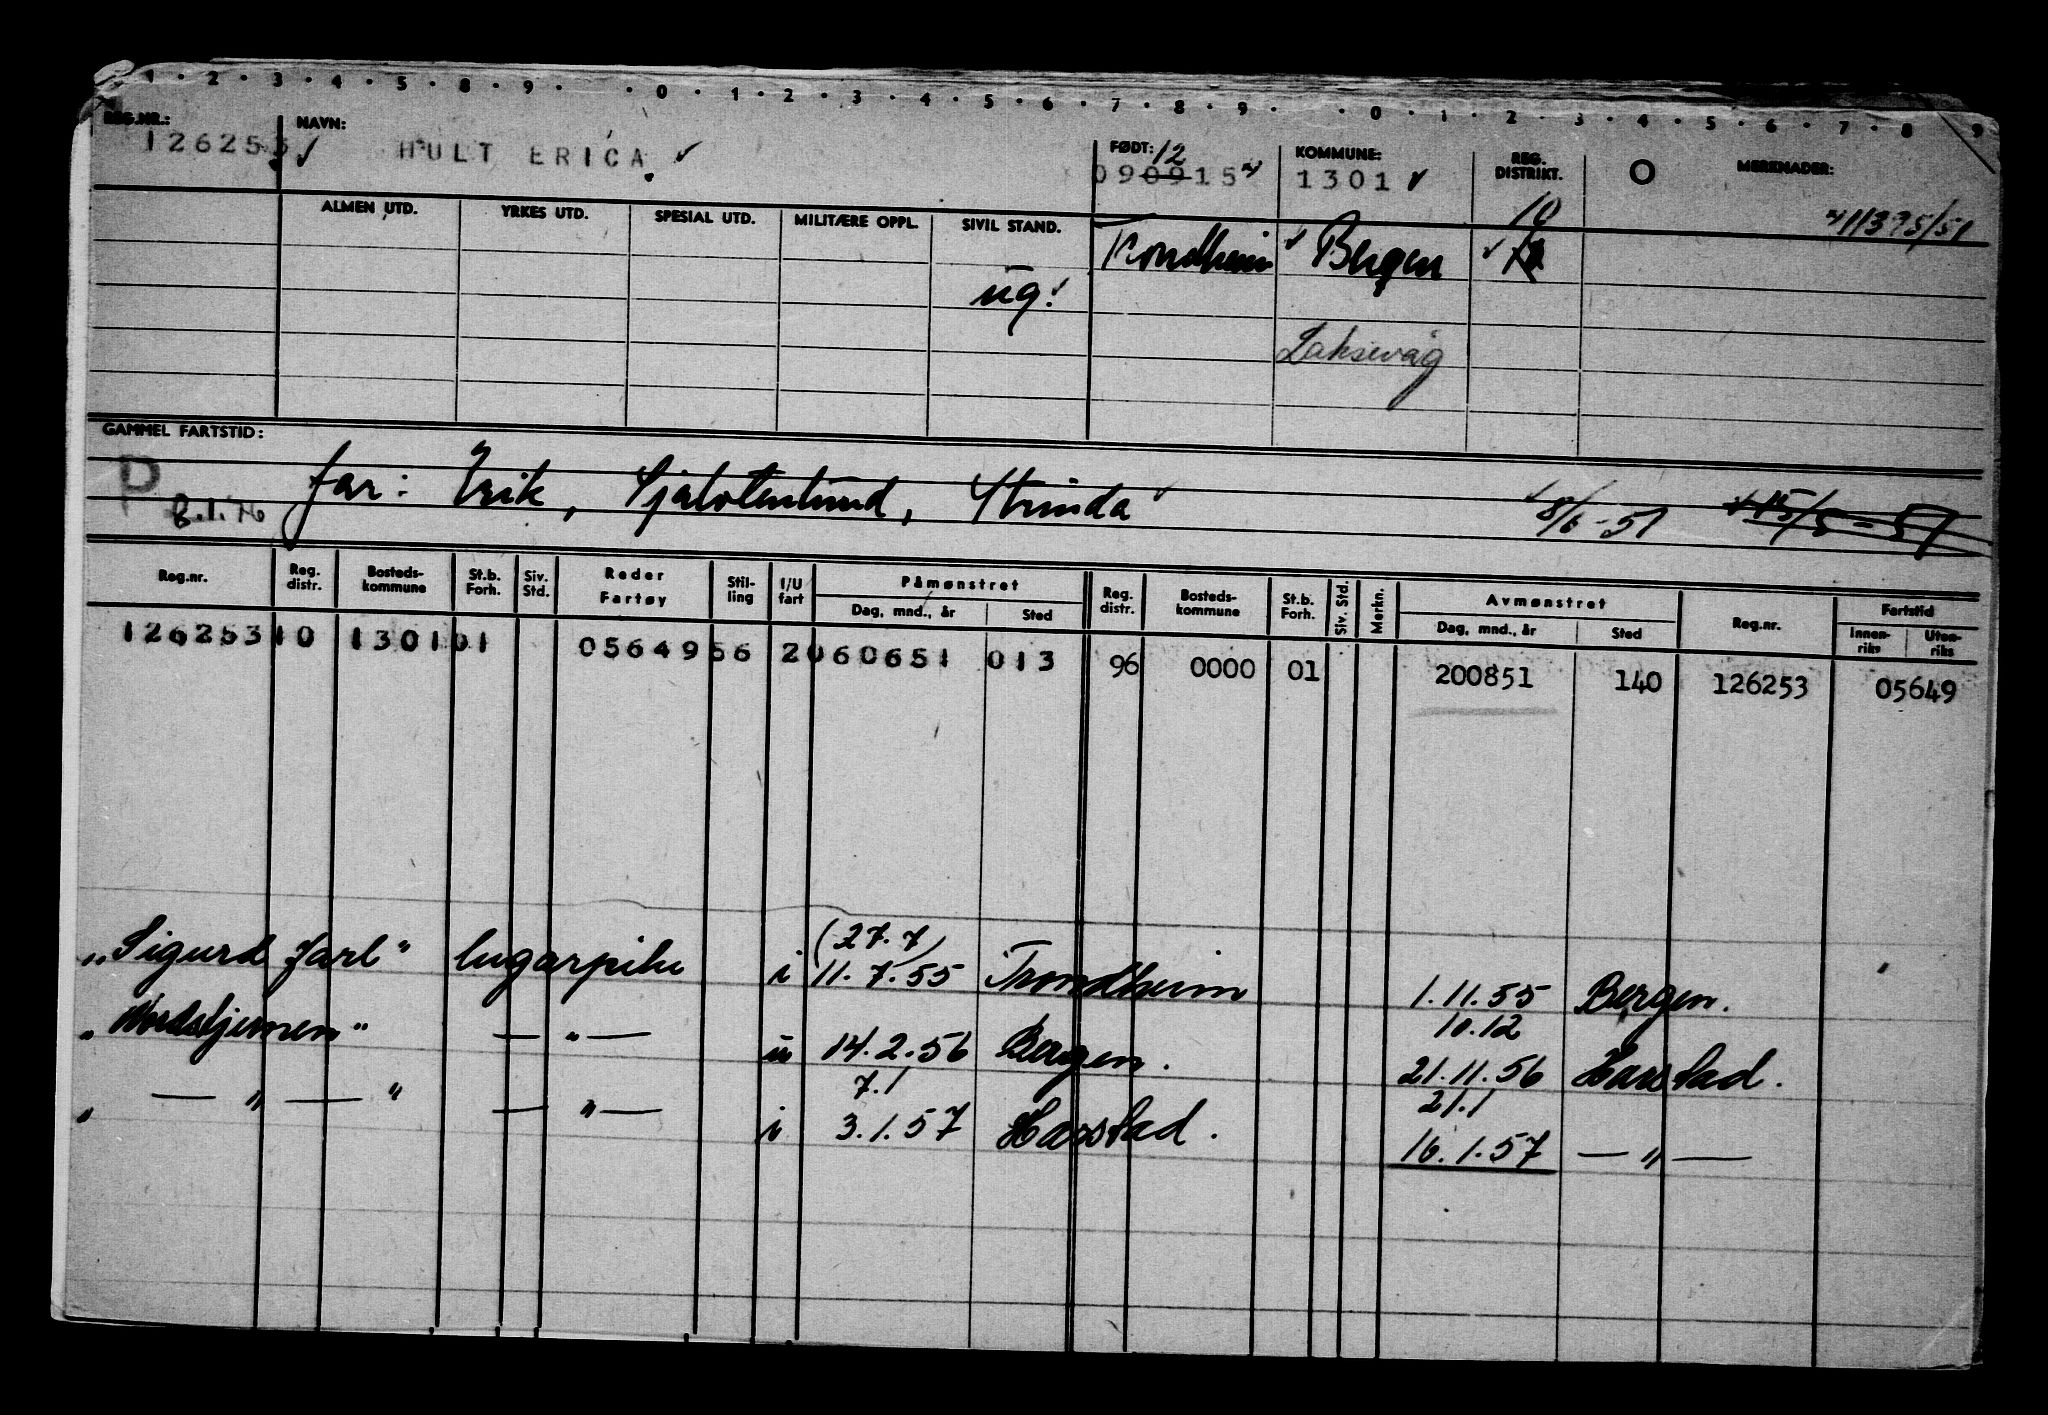 1 · 2 · 3 · 4 · 5 · 8 · 9 · · 0 · 1 · 2 · 3 · 4 · 5 · 6 · 7 · 8 · 9 · · 0 · 1 · 2 · 3 · 4 · 5 · 6 · 7 · 8 · 9
REG.NR.: NAVN: FØDT: KOMMUNE: REG. DISTRIKT. O MERKNADER:
12
126253 ✓ HULT ERICA ✓ 090915 1301 ✓
10
11375/51
ALMEN UTD. YRKES UTD. SPESIAL UTD. MILITÆRE OPPL. SIVIL STAND.
Trondheim ✓ Bergen ✓
ug. ✓
Laksevåg
GAMMEL FARTSTID:
P far: Erik, Strinda ✓ ✓ 8/6-51 ✓ 15/5-51
Reg.nr. Reg. distr. Bosteds-kommune St.b. Forh. Siv. Std. Reder Fartøy Stil-ling I/U fart Påmønstret Dag, mnd., år Sted Reg. distr. Bosteds-kommune St.b. Forh. Siv. Std. Merkn. Avmønstret Dag, mnd., år Sted Reg.nr. Fartstid Innen-riks Uten-riks
126253 10 1301 01 05649 56 2 060651 013 96 0000 01 200851 140 126253 05649
(27.7)
„Sigurd Jarl" lugarpike i 11.7.55 Trondheim 1.11.55 Bergen.
10.12
„Nordstjernen" — " — u 14.2.56 Bergen. 21.11.56 Harstad.
7.1 21.1
„ — " — " — " — i 3.1.57 Harstad. 16.1.57 — " —